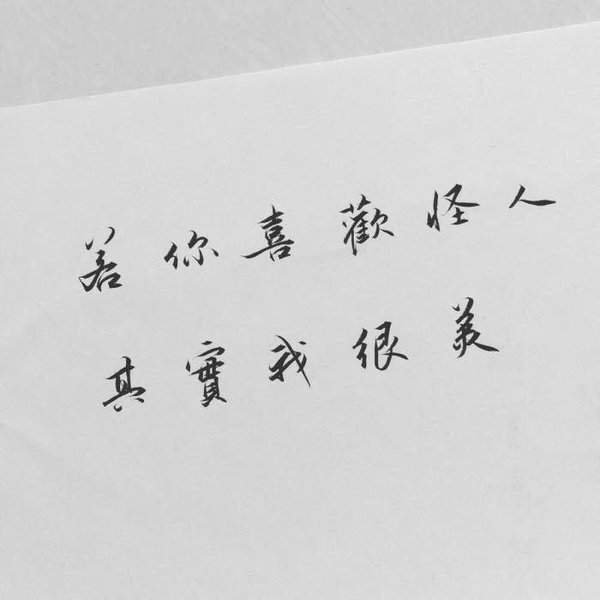 若你喜歡怪人
其實我很美